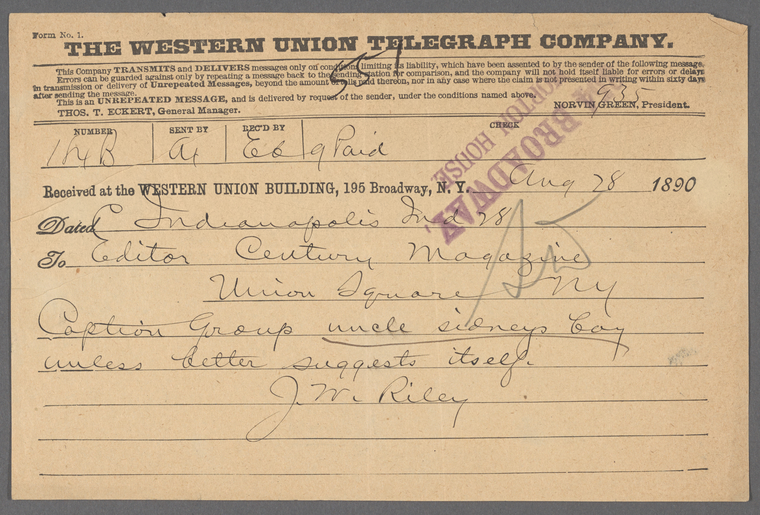 Form No. 1.
THE WESTERN UNION TELEGRAPH COMPANY.
This Company TRANSMITS and DELIVERS messages only on conditions limiting its liability, which have been assented to by the sender of the following message.
Errors can be guarded against only by repeating a message back to the sending station for comparison, and the company will not hold itself liable for errors or delays
in transmission or delivery of Unrepeated Messages, beyond the amount of tolls paid thereon, nor in any case where the claim is not presented in writing within sixty days
after sending the message.
This is an UNREPEATED MESSAGE, and is delivered by request of the sender, under the conditions named above.
THOS. T. ECKERT, General Manager. NORVIN GREEN, President.
935
NUMBER SENT BY REC'D BY CHECK
9 Paid
BROADWAY
HOUSE
Received at the WESTERN UNION BUILDING, 195 Broadway, N. Y. Aug 28 1890
Dated C Indianapolis Ind 28
To Editor Century Magazine
Union Square NY
Caption Group uncle sidneys boy
unless better suggests itself.
J. W. Riley